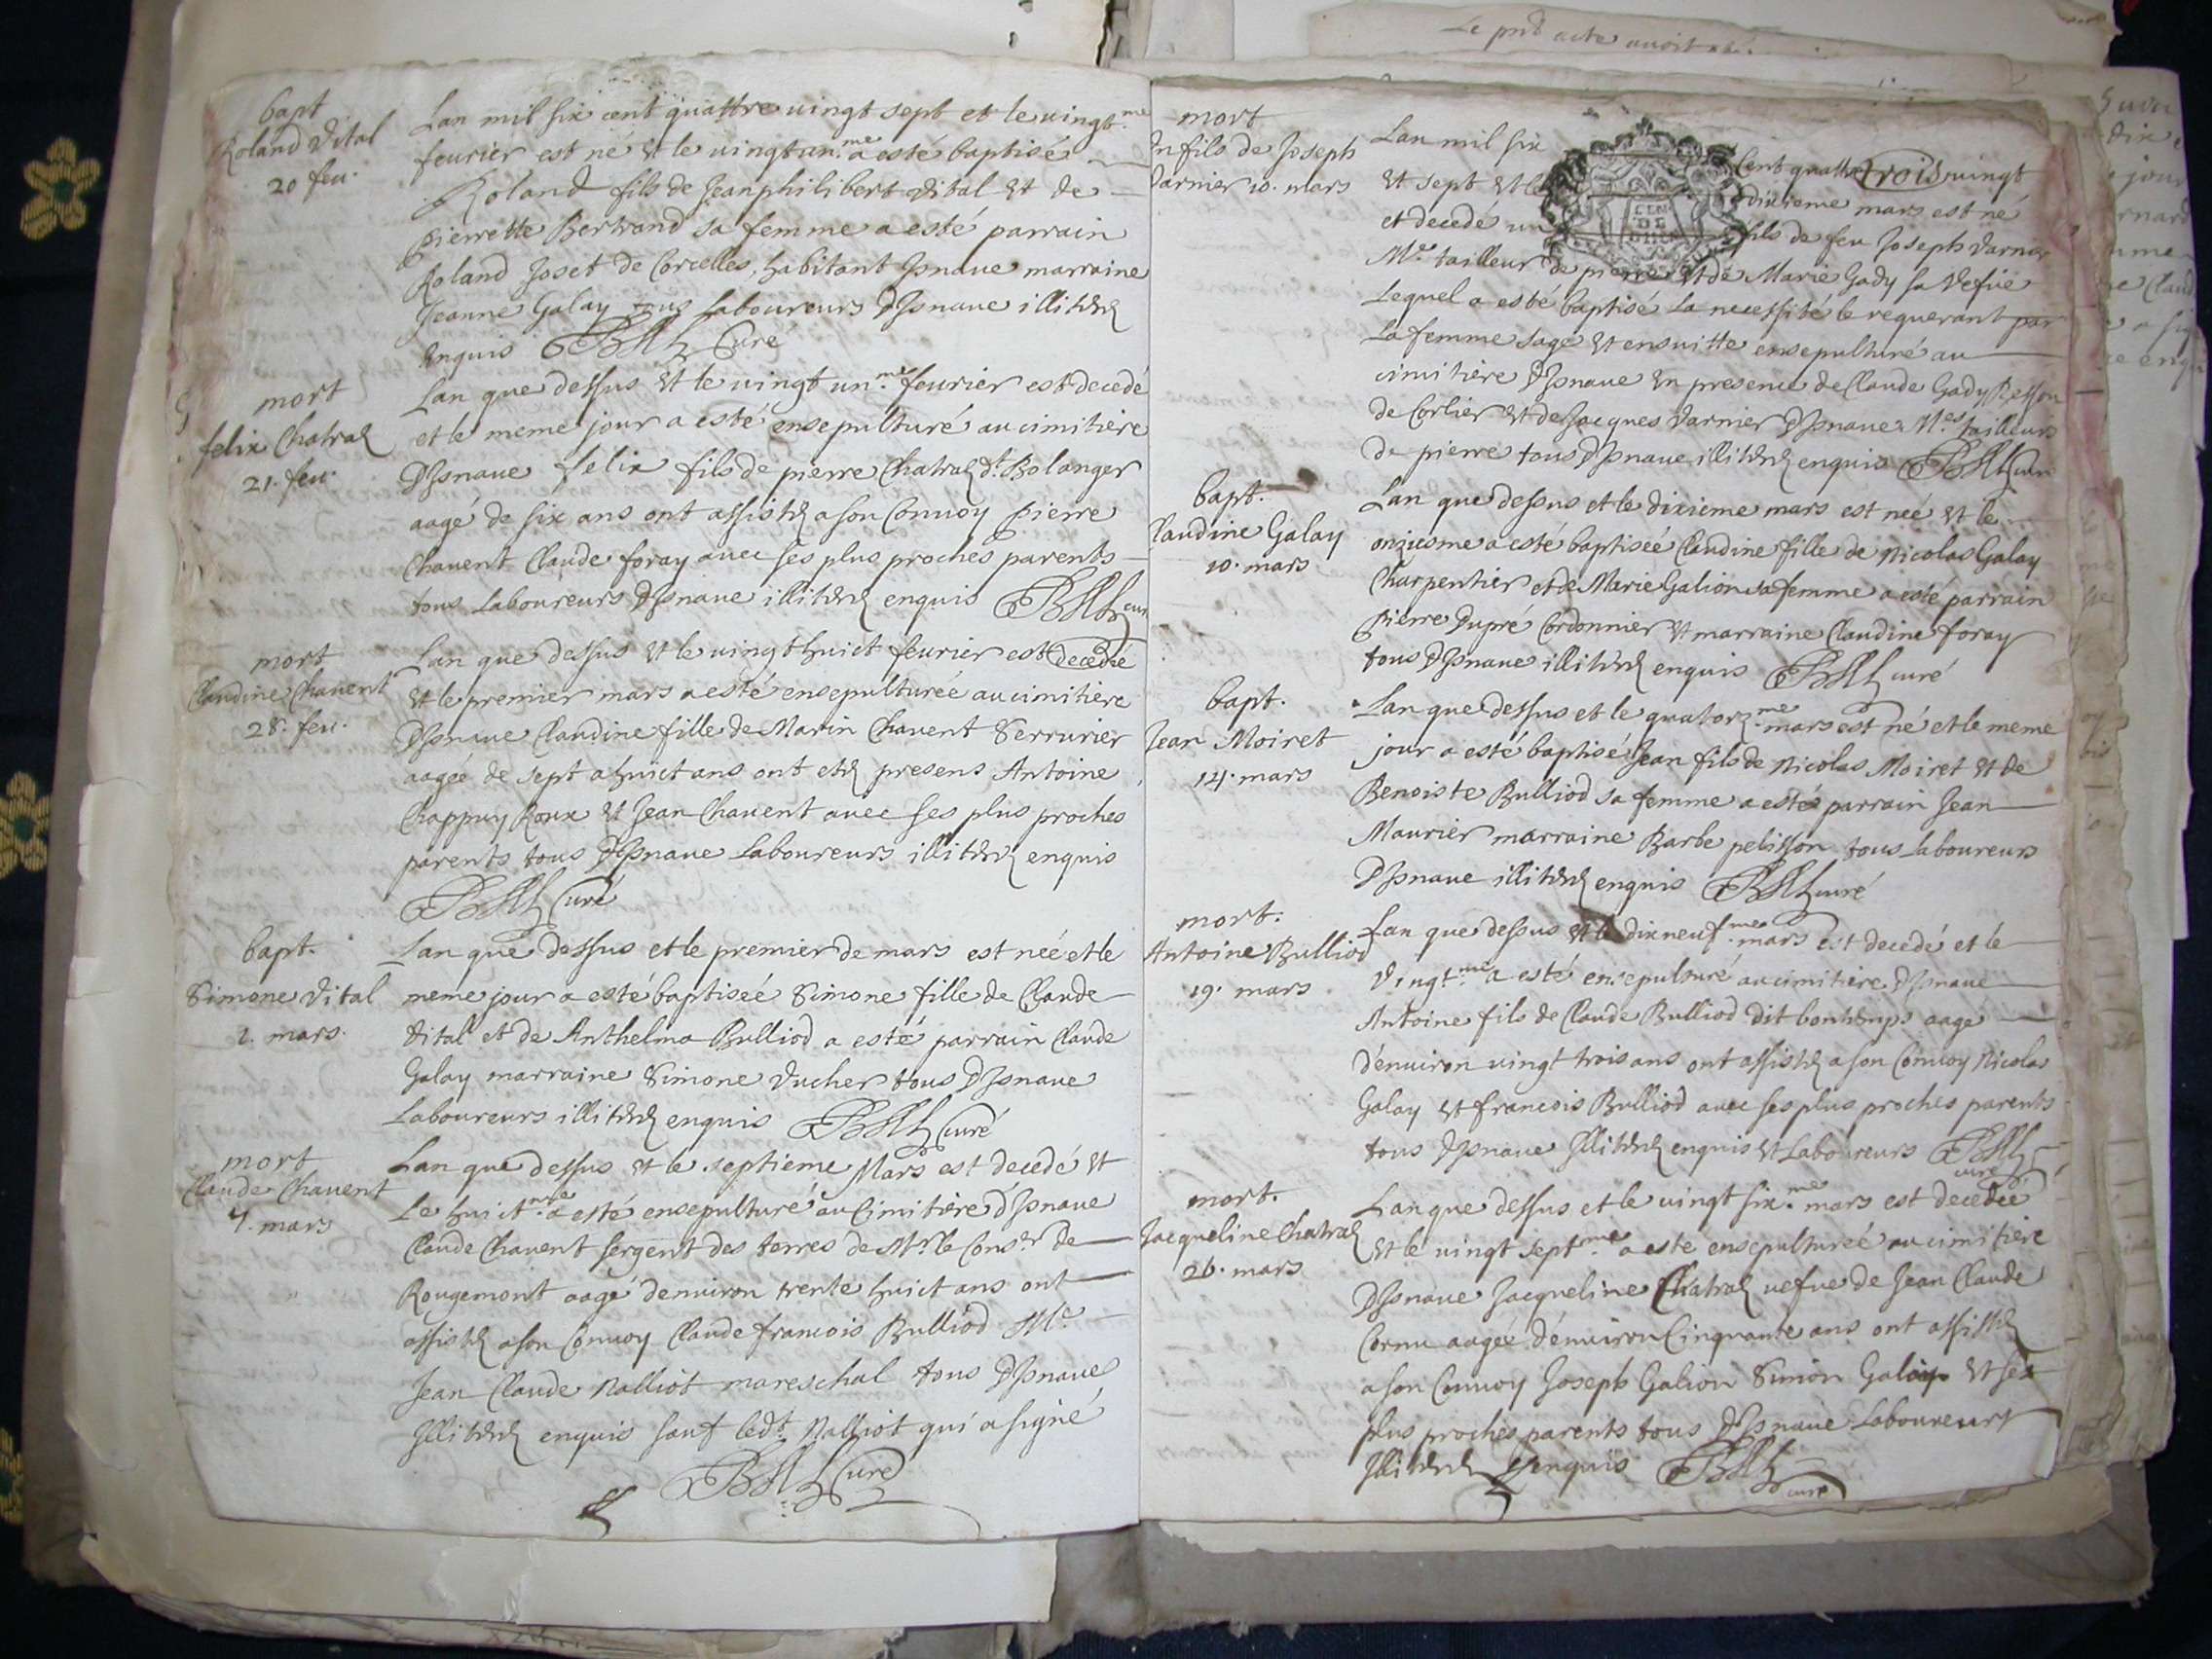 Le pnt acte avoit
bapt
Roland Vital
20 feu.
Lan mil six cent quattre uingt sept et le uingt.me
feurier est né et le uingt un.me a esté baptisé
Roland fils de Jean philibert Vital et de
pierrette Bertrand sa femme a esté parrain
Roland Joset de Corcelles, habitant Jsnaue marraine
Jeanne Galay tous Laboureurs DJsnaue illiterez
enquis Curé
mort
felix Chatraz
21. feu.
Lan que dessus et le uingt un.me feurier est decedé
et le meme jour a esté ensepulturé au cimitiere
DJsnaue felix fils de pierre Chatraz dt Bolanger
aagé de six ans ont assistez a son Conuoy pierre
Chauent Claude foray auec ses plus proches parents
tous Laboureurs DJsnaue illiterez enquis
mort
Claudine Chauent
28. feu.
Lan que dessus et le uingt huict feurier est decedée
et le premier mars a esté ensepulturée au cimitiere
DJsnaue Claudine fille de Marin Chauent Serrurier
aagée de sept a huict ans ont etez presens Antoine
Chappuy Roux et Jean Chauent auec ses plus proches
parents tous DJsnaue Laboureurs illiterez enquis
Curé
bapt.
Simone Vital
1. mars.
Lan que dessus et le premier de mars est neé et le
meme jour a esté baptiseé Simone fille de Claude
Vital et de Anthelma Bulliod a esté parrain Claude
Galay marraine Simone Vucher tous DJsnaue
Laboureurs illiterez enquis Curé
mort
Claude Chauent
7. mars
Lan que dessus et le septieme Mars est decedé et
Le huict.me a esté ensepulturé au Cimitiere d'Jsnaue
Claude Chauent sergent des terres de Mr le Conser de
Rougemont aagé denuiron trente huict ans ont
assistez a son Conuoy Claude francois Bulliod Me
Jean Claude Nalliot mareschal tous DJsnaue
Jlliterez enquis sauf ledt Nalliot qui a signé
Curé
mort
Un fils de Joseph
Varnier 10. mars
Lan mil six Cent quattre trois uingt
et sept et le dixieme mars est né
et decedé un fils de feu Joseph Varnier
Me tailleur de pierre et de Marie Gady sa Vefue
Lequel a esté baptisé La necessité le requerant par
La femme sage et ensuitte ensepulturé au
cimitiere DJsnaue en presence de Claude Gady Besson
de Corlier et de Jacques Varnier DJsnaue Mes tailleurs
de pierre tous DJsnaue illiterez enquis
bapt.
Claudine Galay
10. mars
Lan que dessus et le dixieme mars est neé et le
onziesme a esté baptiseé Claudine fille de Nicolas Galay
Charpentier et de Marie Galion sa femme a esté parrain
pierre Dupré Cordonnier et marraine Claudine foray
tous DJsnaue illiterez enquis curé
bapt.
Jean Moiret
14. mars
Lan que dessus et le quatorz.me mars est né et le meme
jour a esté baptisé Jean fils de Nicolas Moiret et de
Benoiste Bulliod sa femme a estés parrain Jean
Maurier marraine Barbe pelisson tous Laboureurs
DJsnaue illiterez enquis curé
mort.
Antoine Bulliod
19. mars
Lan que dessus et le dixneuf.me mars est decedé et le
Vingt.me a esté ensepulturé au cimitiere DJsnaue
Antoine fils de Claude Bulliod dit bontemps aagé
d'enuiron uingt trois ans ont assistez a son Conuoy Nicolas
Galay et francois Bulliod auec ses plus proches parents
tous DJsnaue Jlliterez enquis et Laboureurs
curé
mort.
Jacqueline Chatraz
26. mars
Lan que dessus et le uingt six.me mars est decedée
et le uingt sept.me a esté ensepulturéé au cimitiere
DJsnaue Jacqueline Chatraz uefue de Jean Claude
Cornu aagéé d'enuiron Cinquante ans ont assistez
a son Conuoy Joseph Galion Simon Galay et ses
plus proches parents tous DJsnaue Laboureurs
Jlliterez enquis
curé